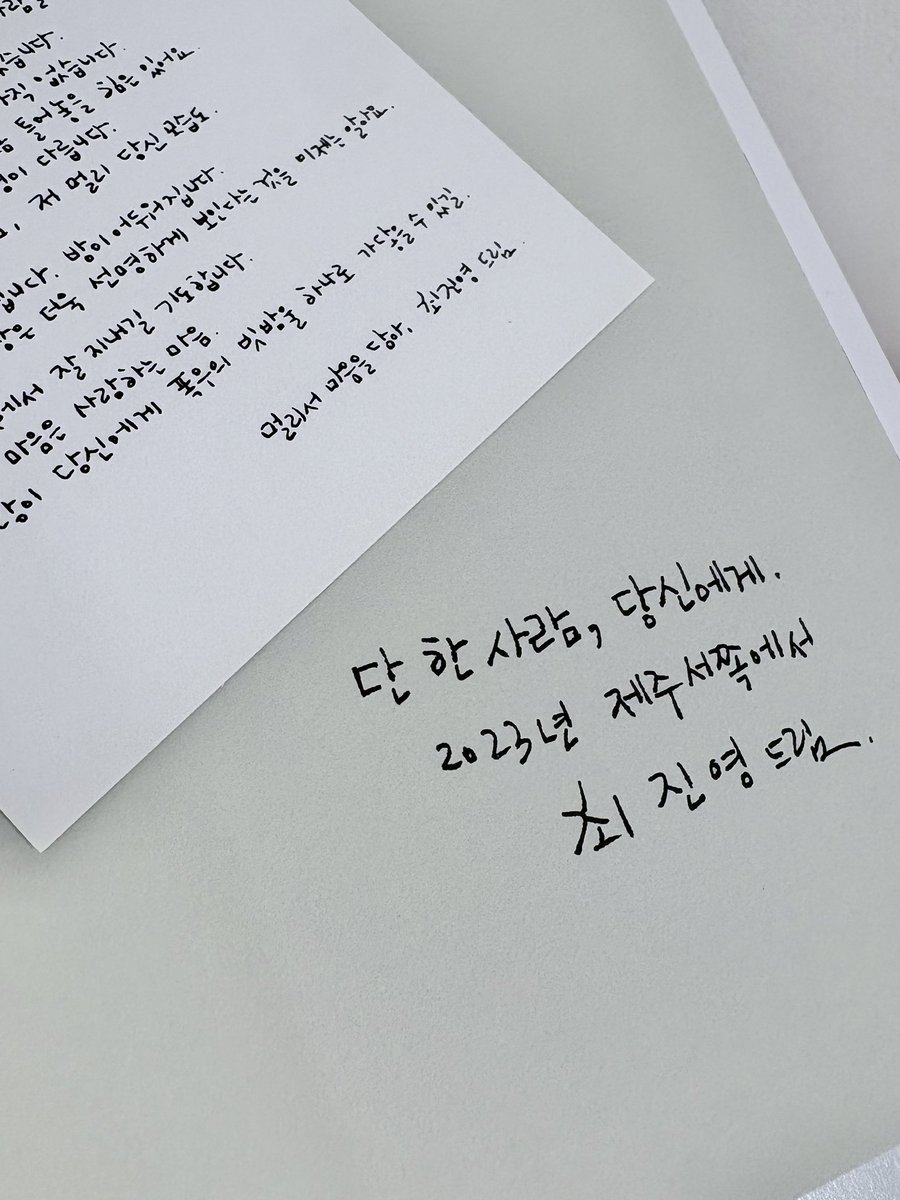 없습니다.
힘은 있어요.
다릅니다.
저 멀리 당신 모습도.
방이 어두워집니다.
더욱 선명하게 보인다는 것을 이제는 알아요.
에서 잘 지내길 기도합니다.
마음은 사랑하는 마음.
당신에게 폭우의 빗방울 하나로 가닿을 수 있길.
멀리서 마음을 담아, 최진영 드림
단 한 사람, 당신에게.
2023년 제주서쪽에서
최진영 드림.